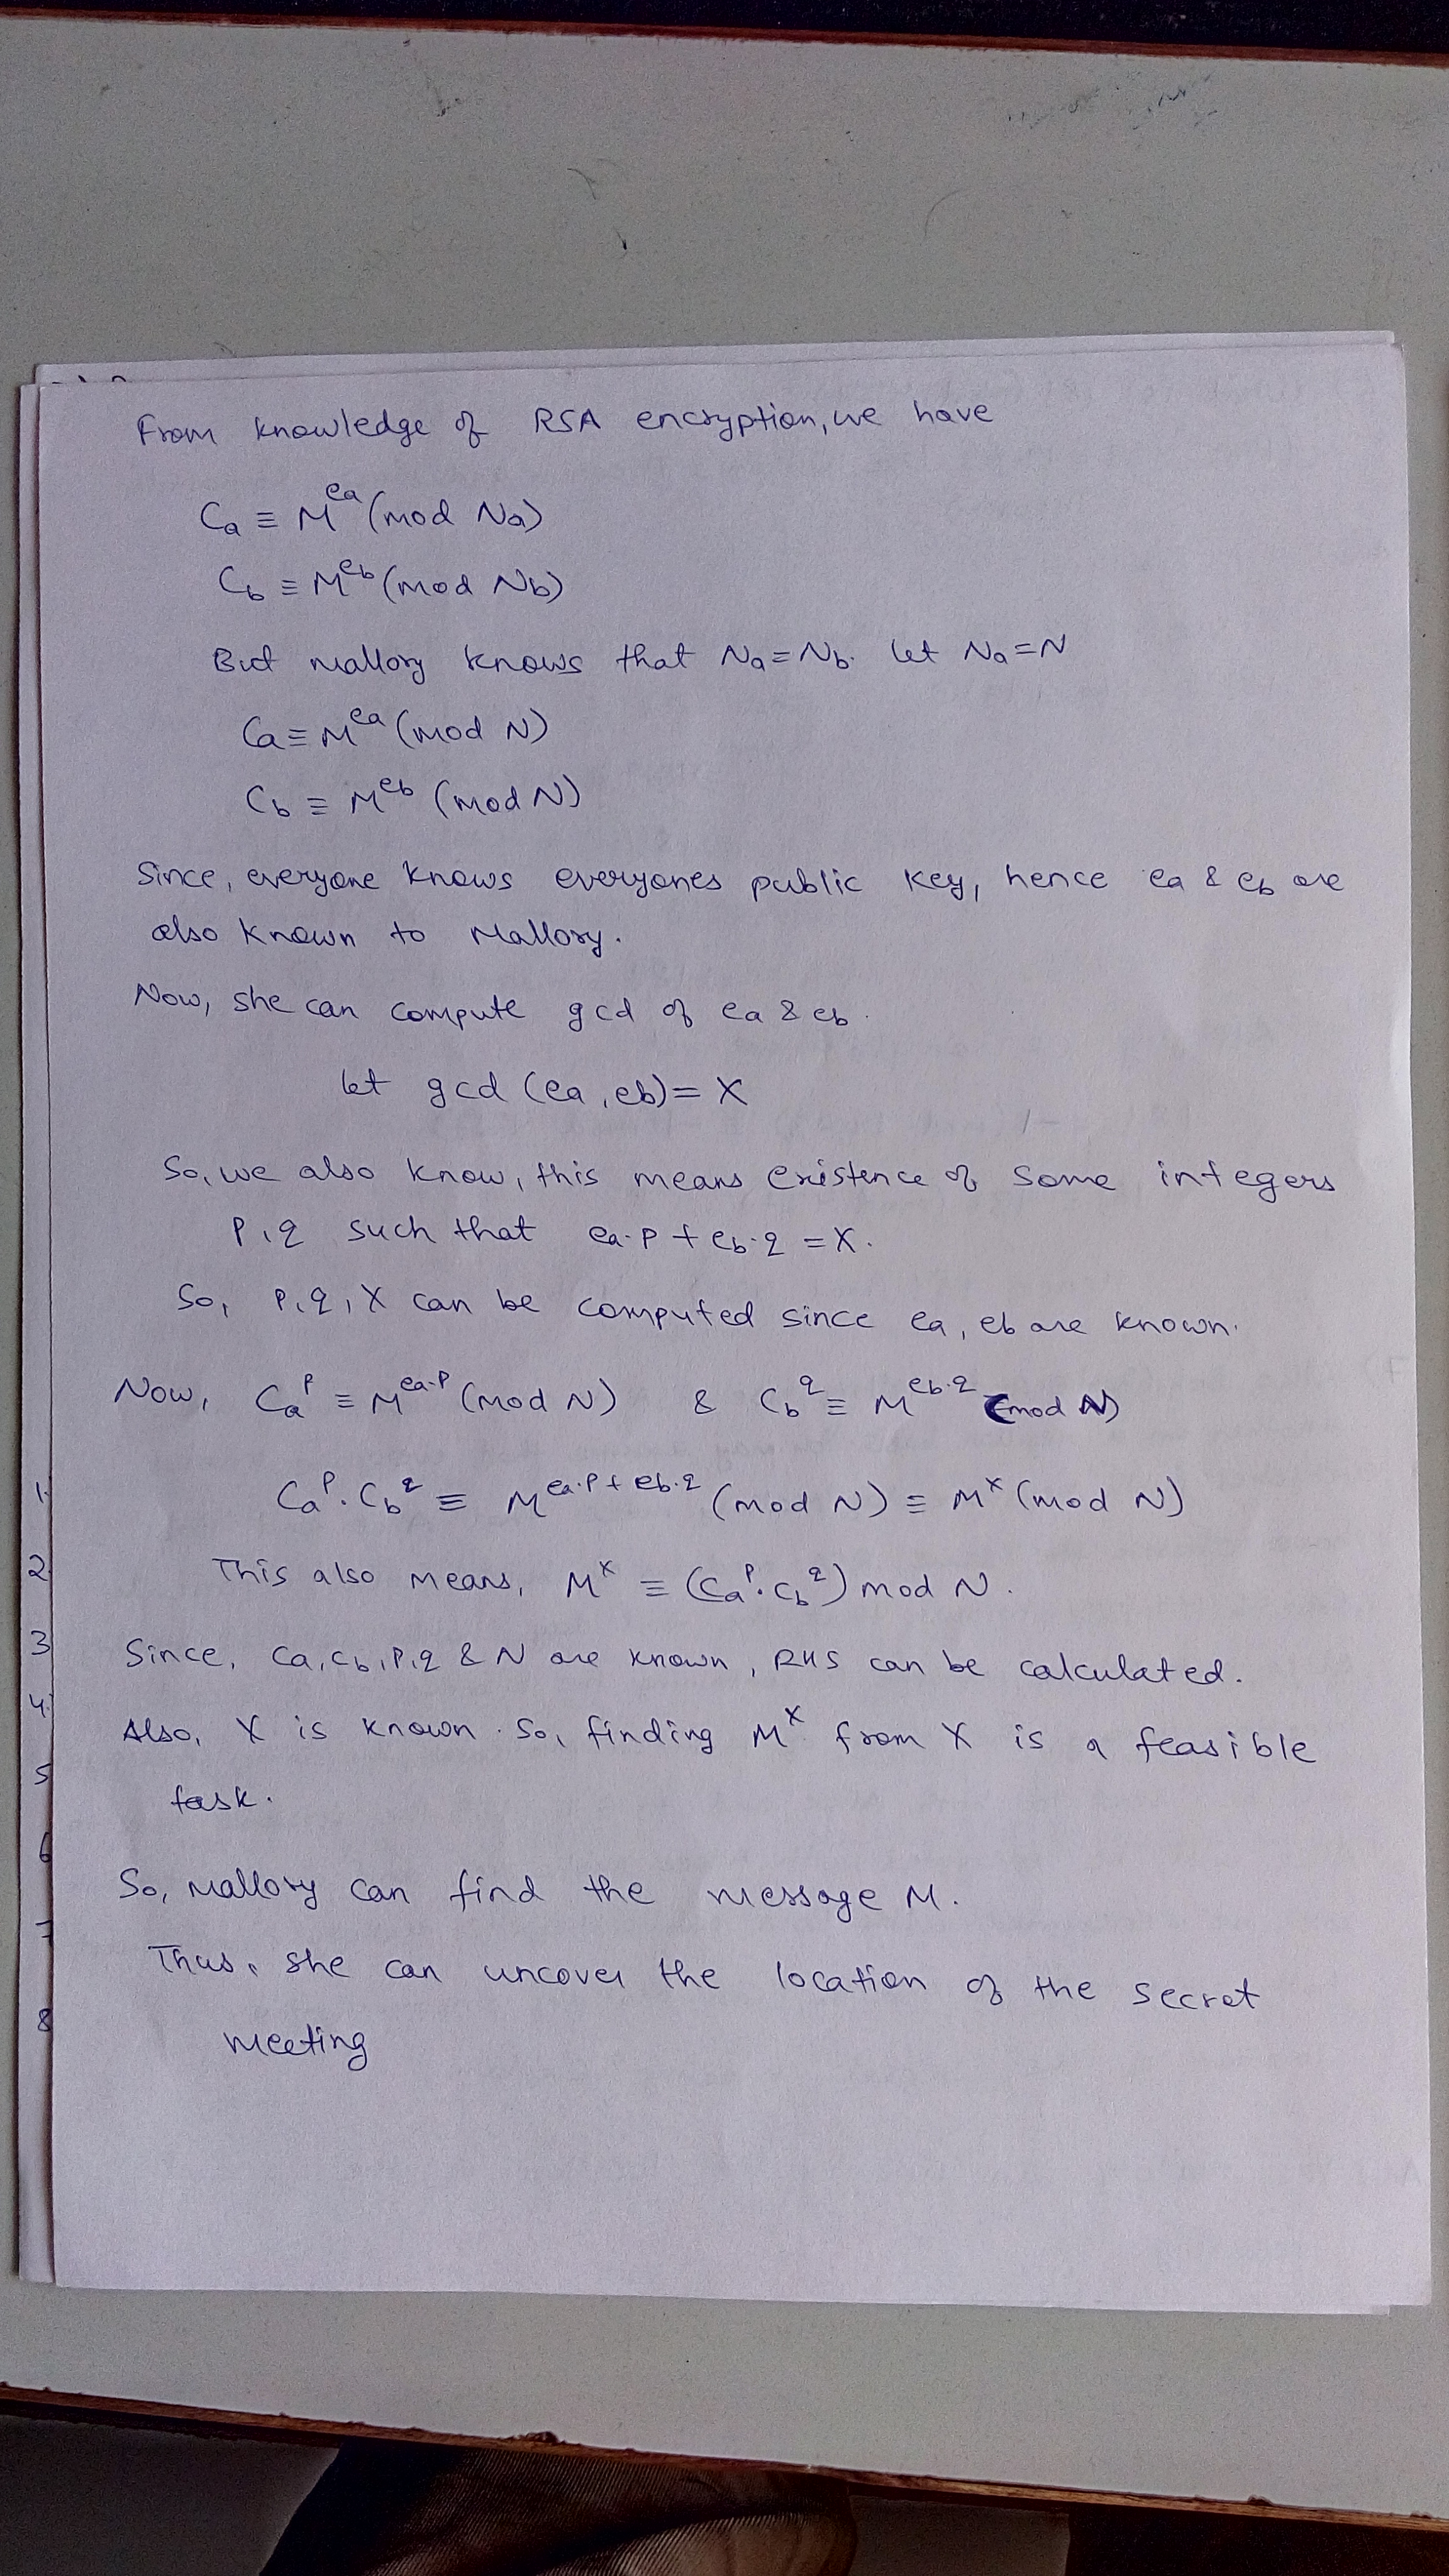 From knowledge of RSA encryption, we have
Ca ≡ M^ea (mod Na)
Cb ≡ M^eb (mod Nb)
But Mallory knows that Na = Nb. Let Na = N
Ca ≡ M^ea (mod N)
Cb ≡ M^eb (mod N)
Since, everyone knows everyones public key, hence ea & eb are
also known to Mallory.
Now, she can compute gcd of ea & eb.
Let gcd (ea, eb) = X
So, we also know, this means existence of some integers
P, q such that ea.p + eb.q = X.
So, P, q, X can be computed since ea, eb are known.
Now, Ca^P ≡ M^ea.P (mod N) & Cb^q ≡ M^eb.q (mod N)
1.
Ca^P. Cb^q ≡ M^ea.P + eb.q (mod N) ≡ M^X (mod N)
2
This also means, M^X ≡ (Ca^P. Cb^q) mod N.
3
Since, Ca, Cb, P, q & N are known, RHS can be calculated.
4.
Also, X is known. So, finding M^X from X is a feasible
5
task.
6
So, Mallory can find the message M.
7
Thus, she can uncover the location of the secret
8
meeting